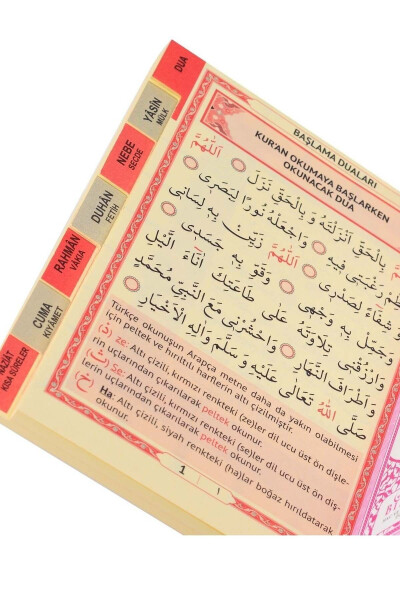 DUA
YÂSİN
MÜLK
NEBE
SECDE
DUHÂN
FETİH
RAHMÂN
VÂKIA
CUMA
KIYÂMET
KISA SÛRELER
BAŞLAMA DUALARI
KUR'AN OKUMAYA BAŞLARKEN
OKUNACAK DUA
بِالْحَقِّ اَنْزَلْتَهُ وَ بِالْحَقِّ نَزَلَ اَللّٰهُمَّ
عَظِّمْ رَغْبَتِى فِيهِ وَاجْعَلْهُ نُورًا لِبَصَرِى
وَشِفَاءً لِصَدْرِى اَللّٰهُمَّ زَيِّنْ بِهِ لِسَانِى
وَجَمِّلْ بِهِ وَجْهِى وَقَوِّ بِهِ جَسَدِى
وَارْزُقْنِى تِلَاوَتَهُ عَلٰى طَاعَتِكَ اٰنَاءَ الَّيْلِ
وَاَطْرَافَ النَّهَارِ وَاحْشُرْنِى مَعَ النَّبِيِّ مُحَمَّدٍ
صَلَّى اللّٰهُ تَعَالٰى عَلَيْهِ وَسَلَّمَ وَاٰلِهِ الْاَخْيَارِ
Türkçe okunuşun Arapça metne daha da yakın olabilmesi
için peltek ve hırıltılı harflerin altı çizilmiştir.
(ذ) ze: Altı çizili, kırmızı renkteki (ze)ler dil ucu üst ön dişle-
rin uçlarından çıkarılarak peltek okunur.
(ث) Se: Altı çizili, kırmızı renkteki (se)ler dil ucu üst ön diş-
lerin uçlarından çıkarılarak peltek okunur.
(خ) Ha: Altı çizili, siyah renkteki (ha)lar boğaz hırıldatarak
okunur.
1